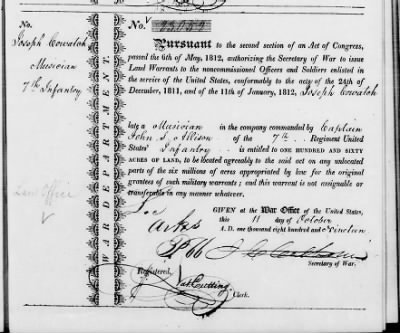 No.
Joseph Cowatch
Musician
7th Infantry
Law Office
WAR DEPARTMENT.
No.
Pursuant to the second section of an Act of Congress,
passed the 6th of May, 1812, authorizing the Secretary of War to issue
Land Warrants to the noncommissioned Officers and Soldiers enlisted
in the service of the United States, conformably to the acts of the 24th of
December, 1811, and of the 11th of January, 1812, Joseph Cowatch
late a Musician in the company commanded by Captain
John S. Allison of the 7th Regiment United
States' Infantry is entitled to ONE HUNDRED AND SIXTY
ACRES OF LAND, to be located agreeably to the said act on any unlocated
parts of the six millions of acres appropriated by law for the original
grantees of such military warrants; and this warrant is not assignable or
transferable in any manner whatever.
GIVEN at the War Office of the United States,
this 11 day of October
A. D. one thousand eight hundred and Nineteen
Arks
J C Calhoun
Secretary of War.
Registered,
Nat Cutting
Clerk.